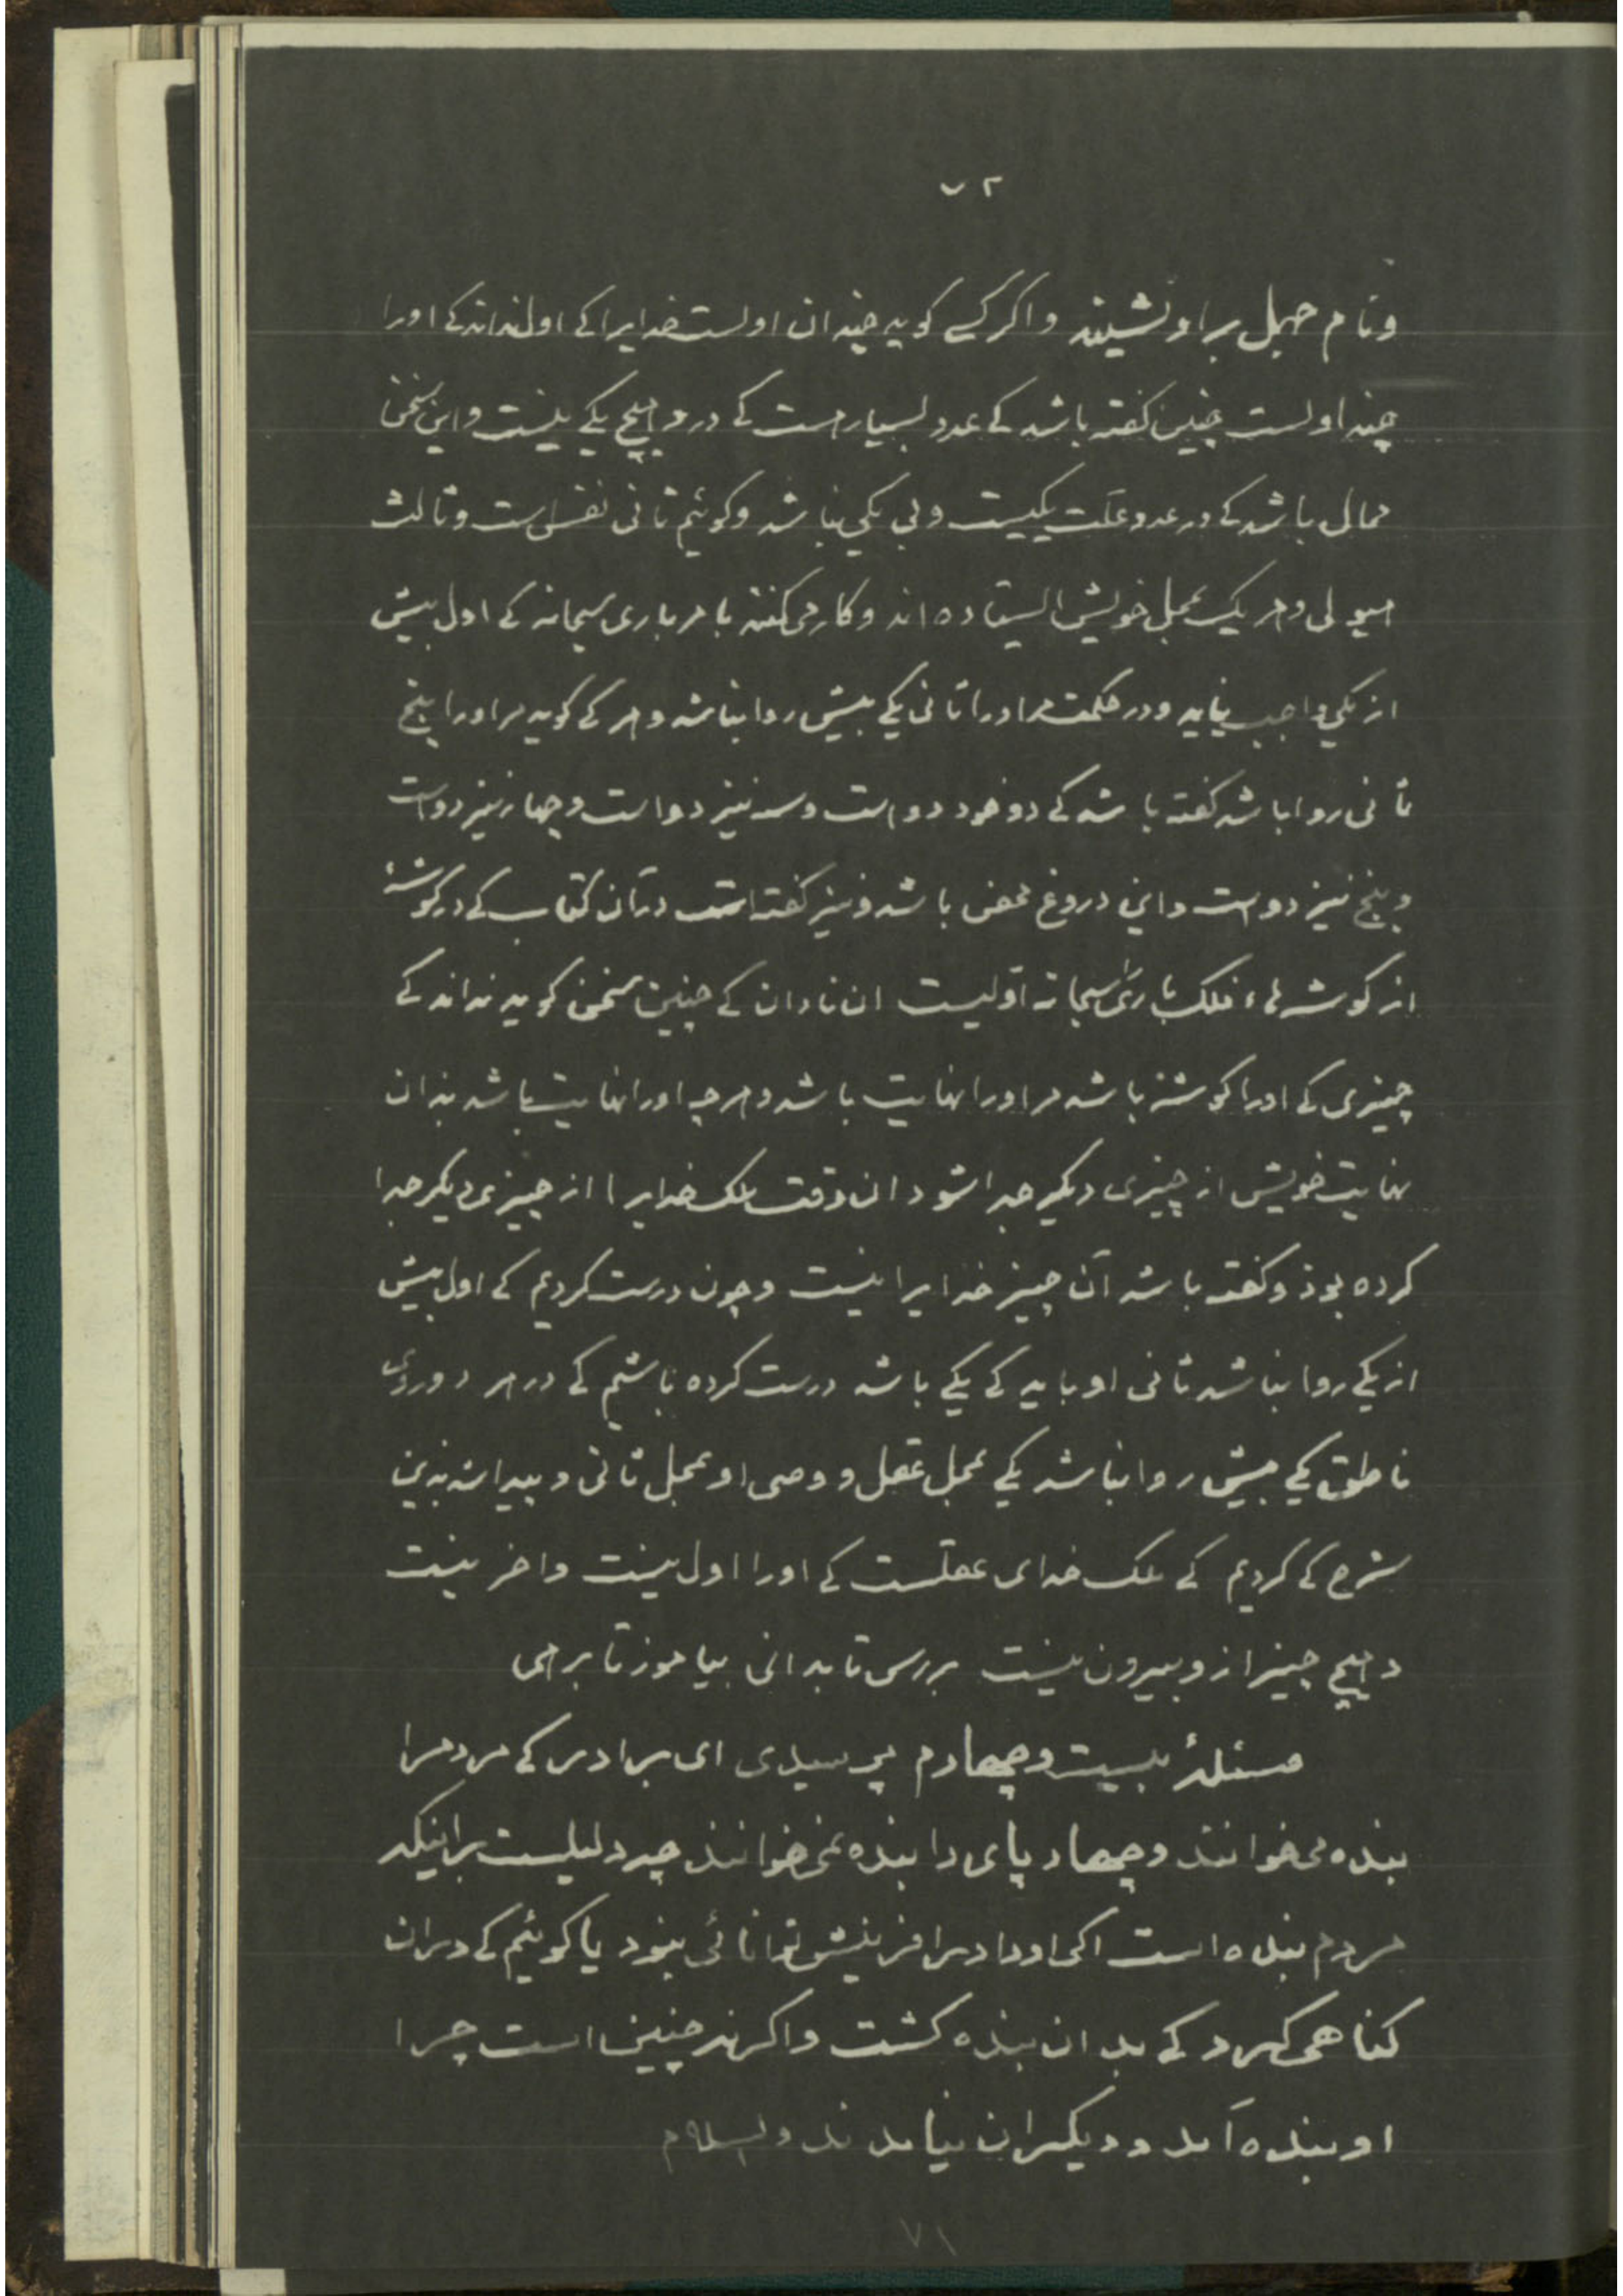 ۷۲
ونام جهل براو نشیند واکر کسے کوید چندان اولست خدایرا کے اول نداند کے اورا
چند اولست چنین کفته باشد کے عدد بسیارست کے درو هیچ یکے نیست واین سخن
محال باشد کے در عدد علت یکیست و بی یکی نباشد وکوئیم ثانی نفس است وثالث
هیولی وهر یک بمحل خویش ایستاده اند وکار می کنند بامر باری سبحانه کے اول بیش
از یکی واجب نیاید ودر حکمت مر اورا ثانی یکے بیش روا نباشد وهر کے کوید مر اورا پنج
ثانی روا باشد کفته باشد کے دو خود دو است وسه نیز دو است وچهار نیز دو است
وپنج نیز دو است واین دروغ محض باشد ونیز کفته است در آن کتاب کے در کوشهٔ
از کوشه هاء فلک باری سبحانه اولیست ان نادان کے چنین سخن کوید نداند کے
چیزی کے اورا کوشه باشد مر اورا نهایت باشد وهرچه اورا نهایت باشد بدان
نهایت خویش از چیزی دیکر جدا شود ان وقت ملک خدایرا از چیزی دیکر جدا
کرده بود وکفته باشد آن چیز خدایرا نیست وچون درست کردیم کے اول بیش
از یکے روا نباشد ثانی او باید کے یکے باشد درست کرده باشیم کے در هر دوری
ناطق یکے بیش روا نباشد یکے بمحل عقل ووصی او بمحل ثانی وپیدا شد بدین
شرح کے کردیم کے ملک خدای عقلست کے اورا اول نیست واخر نیست
وهیچ چیز ازو بیرون نیست بررس تا بدانی بیاموز تا برهی
مسئلهٔ بیست وچهارم پرسیدی ای برادر کے مردم را
بنده می خوانند وچهارپای را بنده نمی خوانند چه دلیلست براینکه
مردم بنده است اکر اورا در افرینش توانائی نبود یا کوئیم کے دران
کناهی کرد کے بدان بنده کشت واکر نه چنین است چرا
او بنده آمد ودیکران نیامدند والسلام
۷۱